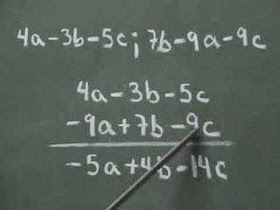 4a-3b-5c; 7b-9a-9c
4a-3b-5c
-9a+7b-9c
-5a+4b-14c